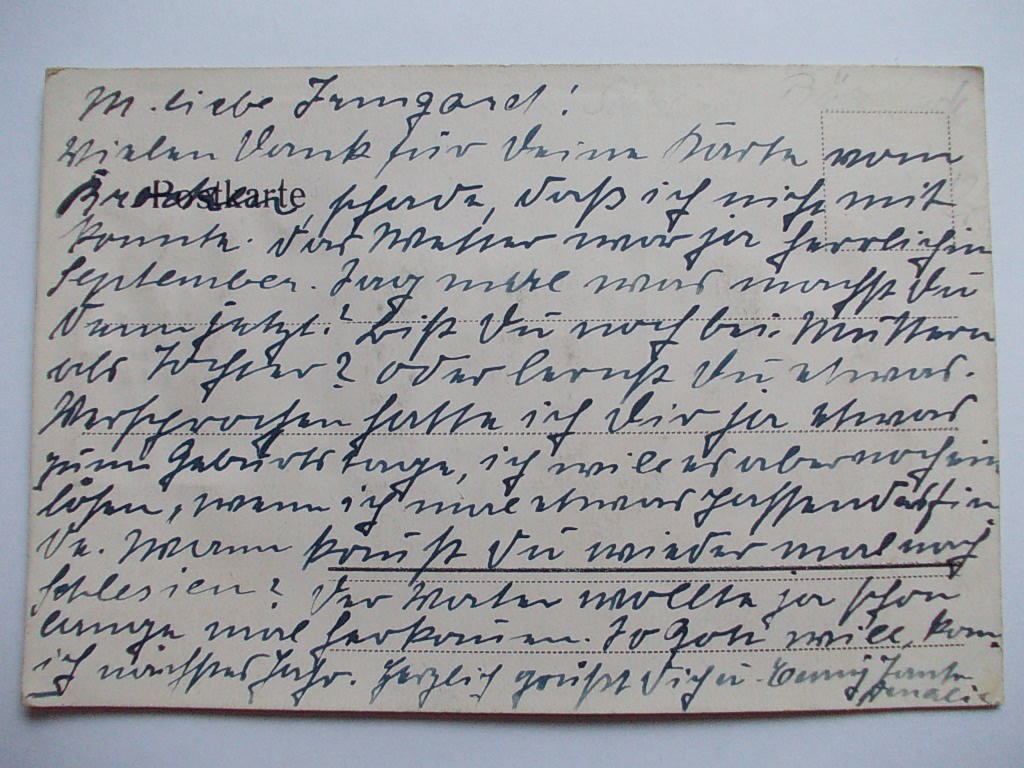 M. liebe Irmgard!
Vielen Dank für Deine Karte vom
Postkarte
Brocken, schade, daß ich nicht mit
konnte. Das Wetter war ja herrlich im
September. Sag mal was machst Du
denn jetzt? Bist Du noch bei Muttern
als Tochter? oder lernst Du etwas.
Versprochen hatte ich Dir ja etwas
zum Geburtstage, ich will es aber noch ein
lösen, wenn ich mal etwas passendes fin
de. Wann kommst Du wieder mal nach
Schlesien? Der Vater wollte ja schon
lange mal herkommen. So Gott will, kom
ich nächstes Jahr. Herzlich grüßt Dich u. Tante